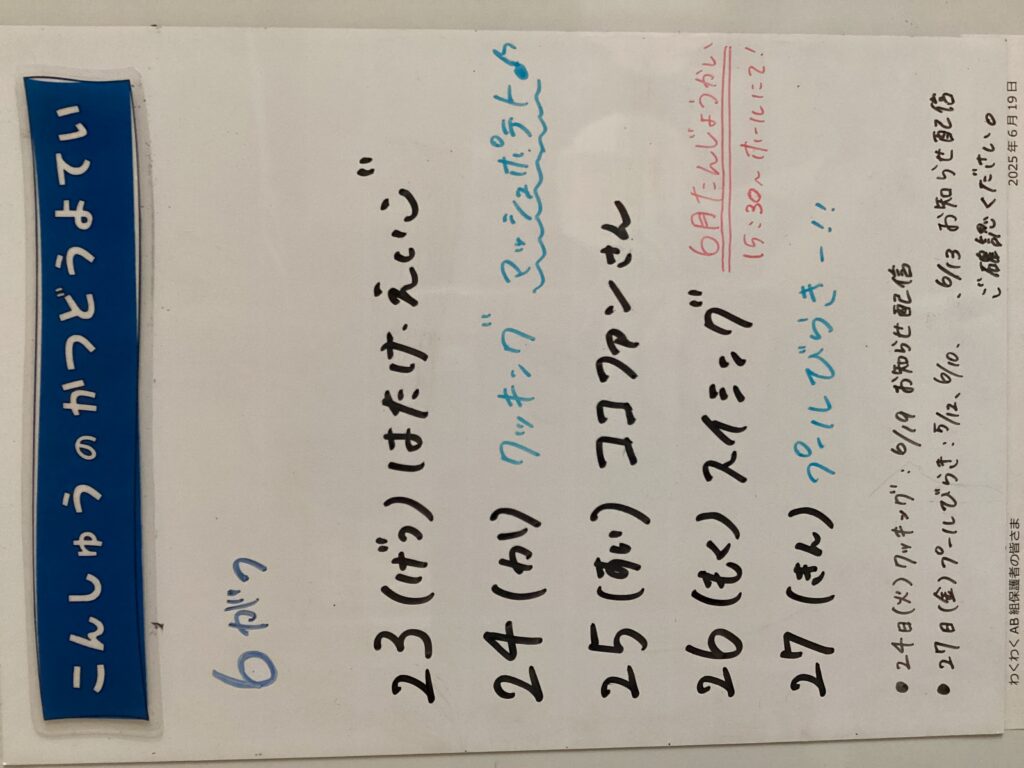 こんしゅうのかつどうよてい
6がつ
23(げつ) はたけ・えいご
24(かに) クッキング マッシュポテト♪
25(すい) ココファンさん
26(もく) スイミング 6月たんじょうかい
15:30〜ホールにて!
27(きん) プールびらきー!!
●24日(火)クッキング:6/19 お知らせ配信
●27日(金)プールびらき:5/12、6/10、6/13 お知らせ配信
ご確認ください。
2025年6月19日
わくわくAB組保護者の皆さま